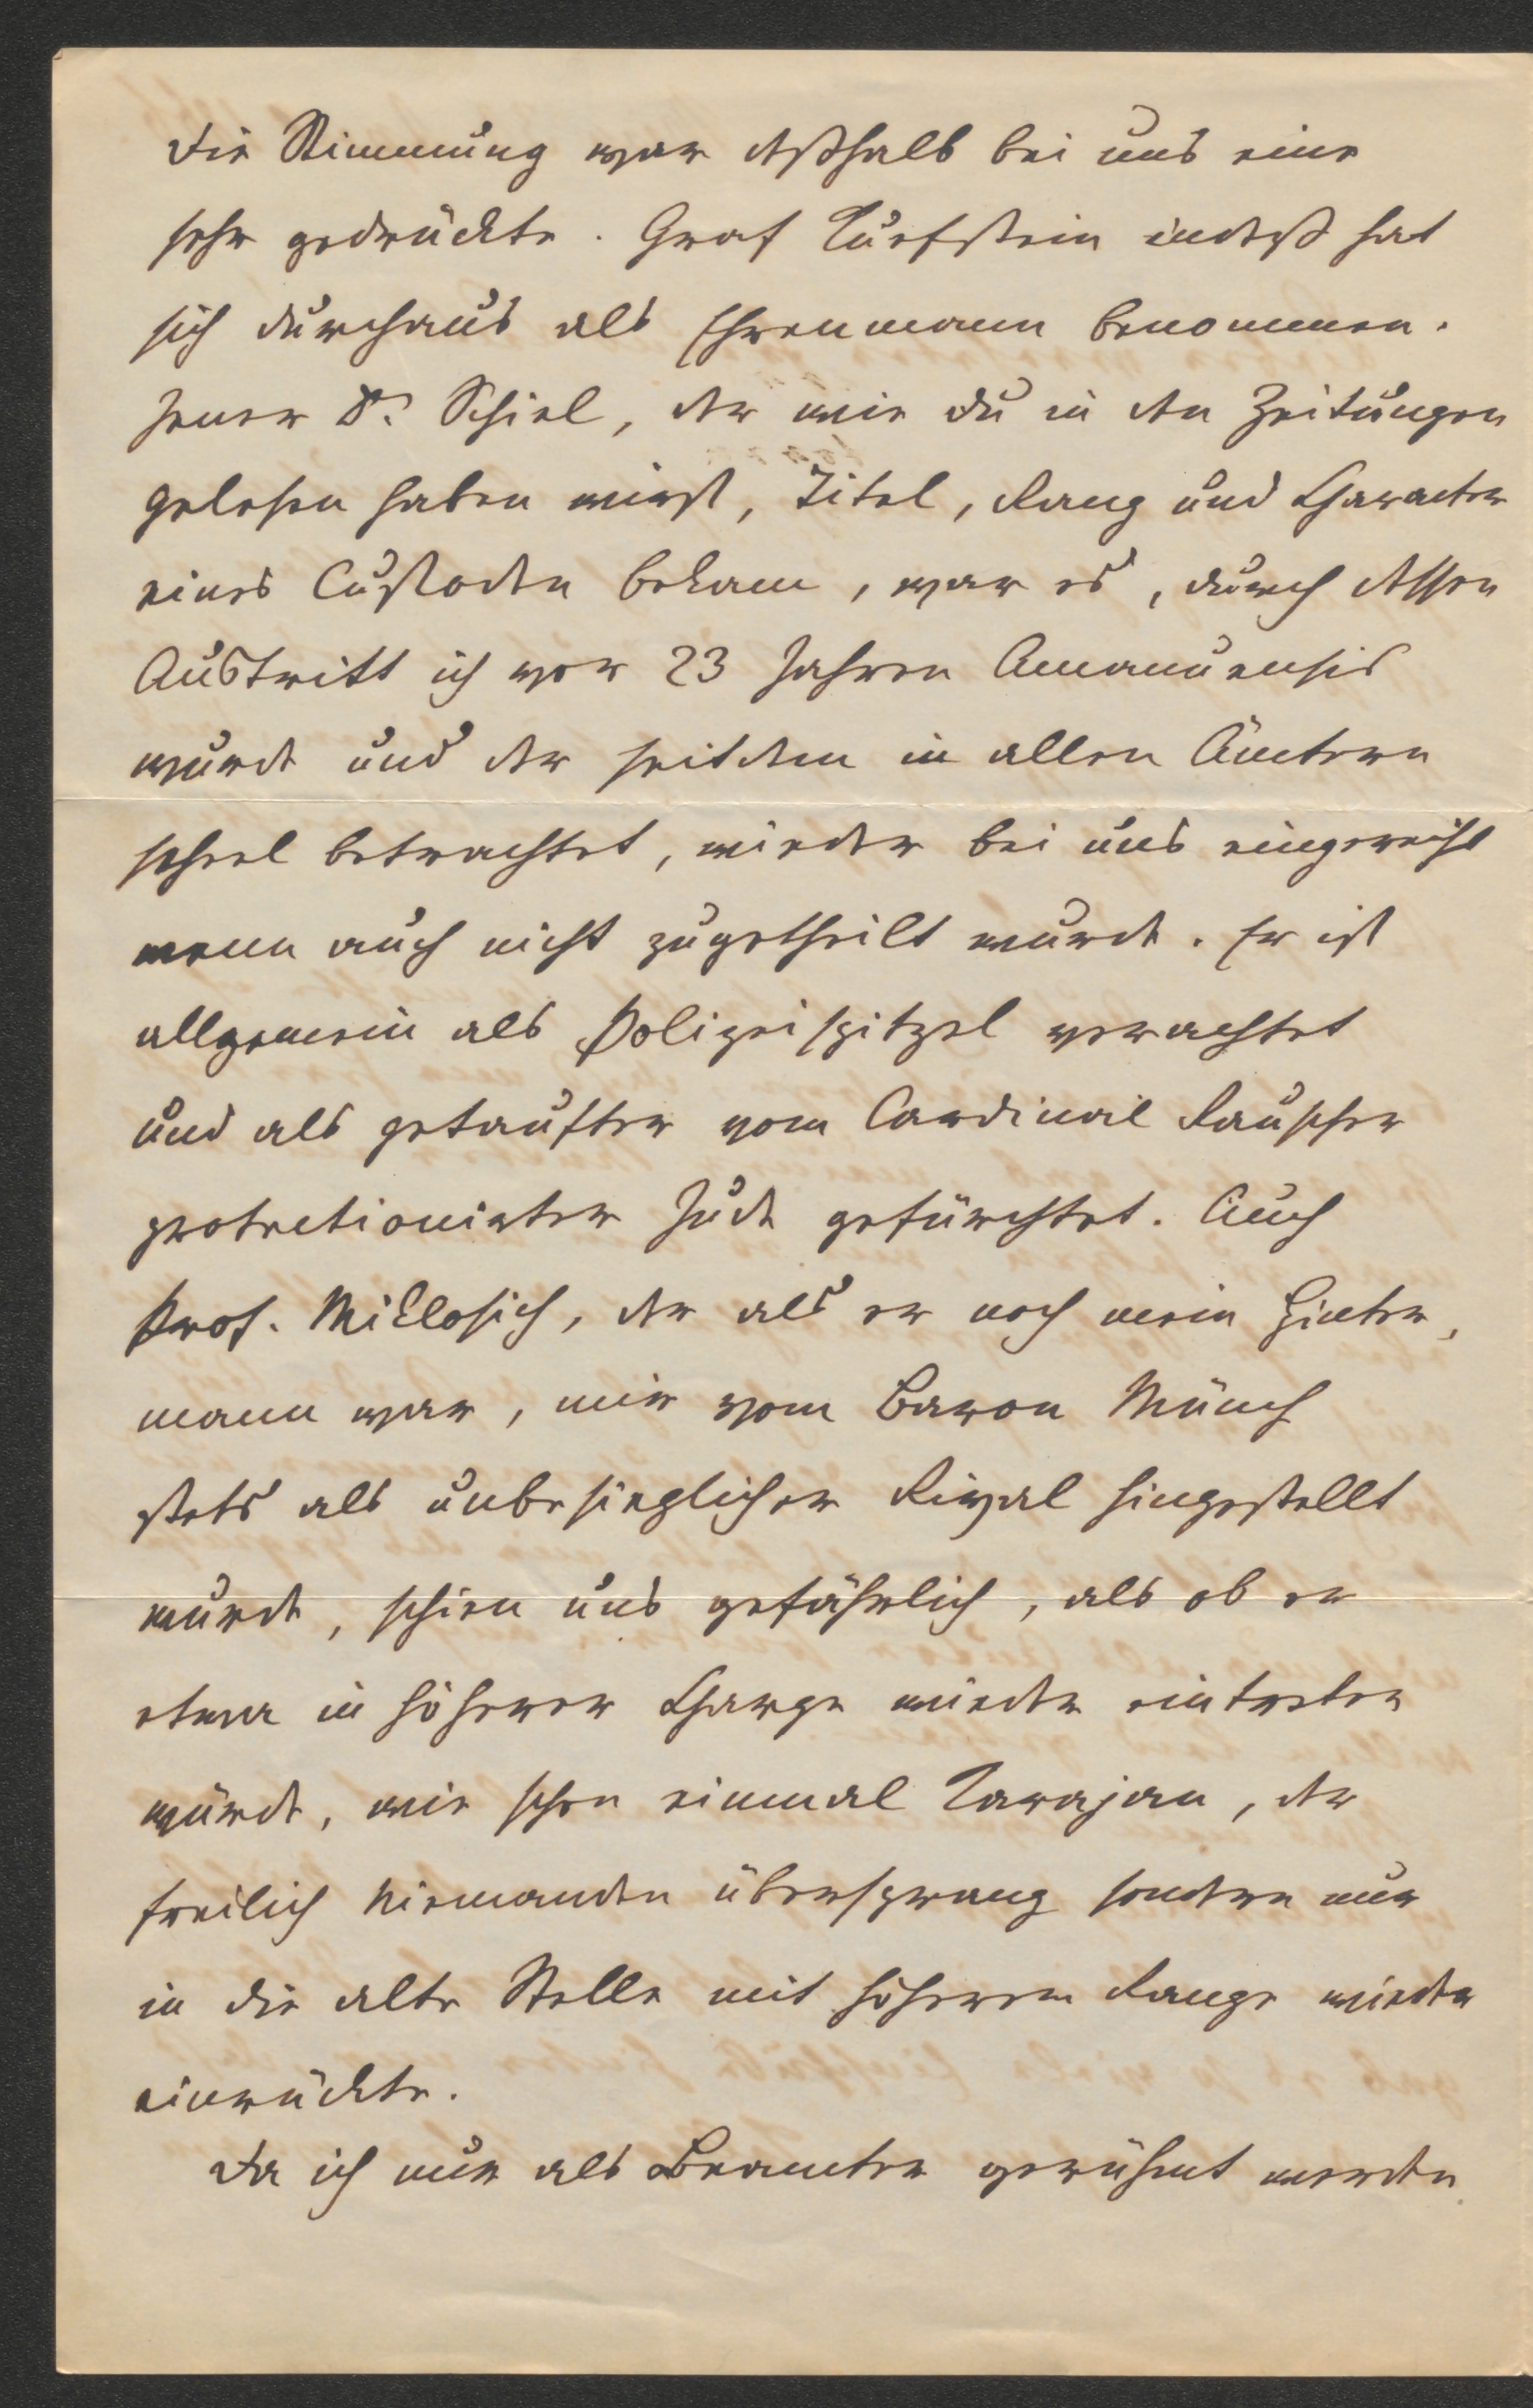 Die Stimmung war deßhalb bei uns eine
sehr gedrückte. Graf Kuefstein indeß hat
sich durchaus als Ehrenmann benommen.
Jener Dr. Schiel, der wie du in den Zeitungen
gelesen haben wirst, Titel, Rang und Charakter
eines Custoden bekam, war es, durch dessen
Austritt ich vor 23 Jahren Amanuensis
wurde und der seitdem in allen Ämtern
scheel betrachtet, wieder bei uns eingereiht
wenn auch nicht zugetheilt wurde. Er ist
allgemein als Polizeispitzel verachtet
und als getaufter vom Cardinal Rauscher
protectionirter Jude gefürchtet. Auch
Prof. Miklosich, der als er noch mein Hinter,
mann war, mir vom Baron Münch
stets als unbesieglicher Rival hingestellt
wurde, schien uns gefährlich, als ob er
etwa in höherer Charge wieder eintreten
würde, wie schon einmal Karajan, der
freilich Niemanden übersprang sondern nur
in die alte Stelle mit höherem Range wieder
einrückte.
Da ich nur als Beamter gerühmt werden